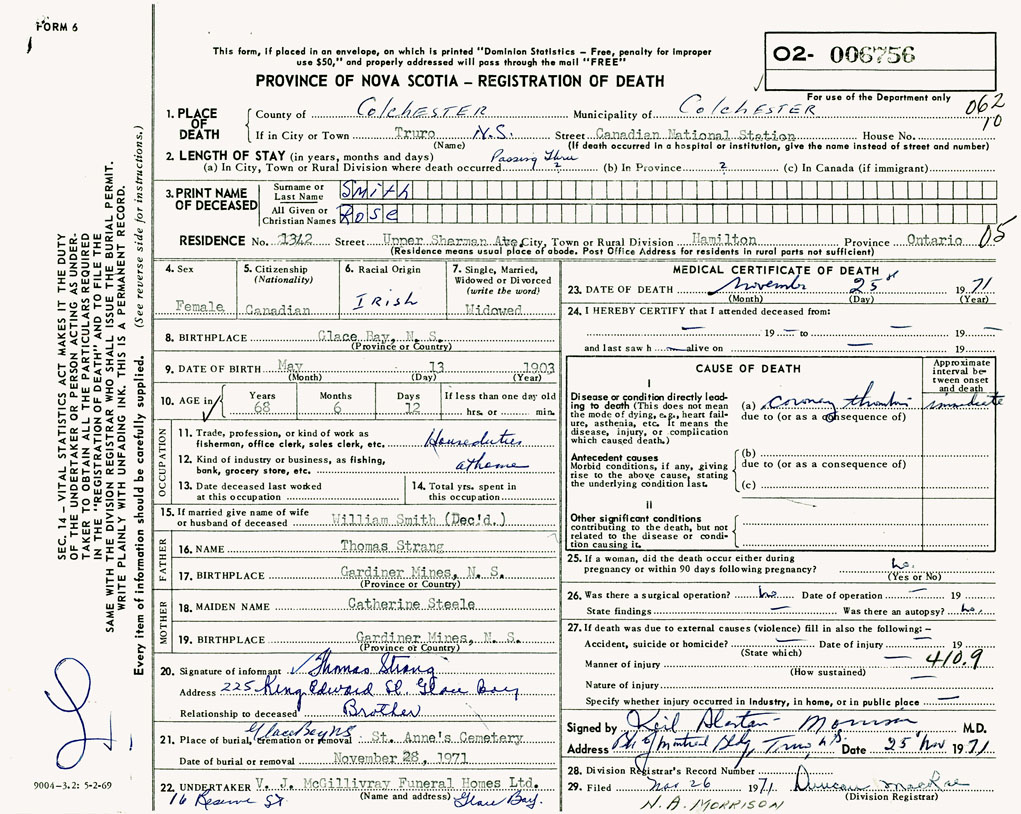 FORM 6
This form, if placed in an envelope, on which is printed "Dominion Statistics – Free, penalty for improper
use $50," and properly addressed will pass through the mail "FREE"
PROVINCE OF NOVA SCOTIA – REGISTRATION OF DEATH
O2- 006756
For use of the Department only
062
10
1. PLACE OF DEATH
County of Colchester Municipality of Colchester
If in City or Town Truro N.S. Street Canadian National Station House No.
(Name) (If death occurred in a hospital or institution, give the name instead of street and number)
2. LENGTH OF STAY (in years, months and days) Passing Thru
(a) In City, Town or Rural Division where death occurred 2 (b) In Province 2 (c) In Canada (if immigrant)
3. PRINT NAME OF DECEASED
Surname or Last Name Smith
All Given or Christian Names Rose
RESIDENCE No. 1342 Street Upper Sherman Ave, City, Town or Rural Division Hamilton Province Ontario 05
(Residence means usual place of abode. Post Office Address for residents in rural parts not sufficient)
4. Sex Female
5. Citizenship (Nationality) Canadian
6. Racial Origin Irish
7. Single, Married, Widowed or Divorced (write the word) Widowed
8. BIRTHPLACE Glace Bay, N. S.
(Province or Country)
9. DATE OF BIRTH May 13 1903
(Month) (Day) (Year)
10. AGE in Years 68 Months 6 Days 12 If less than one day old hrs. or min.
OCCUPATION
11. Trade, profession, or kind of work as fisherman, office clerk, sales clerk, etc. Houseduties
12. Kind of industry or business, as fishing, bank, grocery store, etc. at home
13. Date deceased last worked at this occupation
14. Total yrs. spent in this occupation
15. If married give name of wife or husband of deceased William Smith (Dec'd.)
FATHER
16. NAME Thomas Strang
17. BIRTHPLACE Gardiner Mines, N. S.
(Province or Country)
MOTHER
18. MAIDEN NAME Catherine Steele
19. BIRTHPLACE Gardiner Mines, N. S.
(Province or Country)
20. Signature of informant Thomas Strang
Address 225 King Edward St. Glace Bay
Relationship to deceased Brother
21. Place of burial, cremation or removal Glace Bay NS St. Anne's Cemetery
Date of burial or removal November 28, 1971
22. UNDERTAKER V. J. McGillivray Funeral Homes Ltd.
(Name and address)
16 Reserve St. Glace Bay.
MEDICAL CERTIFICATE OF DEATH
23. DATE OF DEATH November 25 1971
(Month) (Day) (Year)
24. I HEREBY CERTIFY that I attended deceased from:
— 19 — to — 19 —
and last saw h — alive on — 19
CAUSE OF DEATH
Approximate interval between onset and death
I
Disease or condition directly leading to death (This does not mean the mode of dying, e.g., heart failure, asthenia, etc. It means the disease, injury, or complication which caused death.)
(a) Coronary immediate
due to (or as a consequence of)
Antecedent causes
Morbid conditions, if any, giving rise to the above cause, stating the underlying condition last.
(b)
due to (or as a consequence of)
(c)
II
Other significant conditions contributing to the death, but not related to the disease or condition causing it.
25. If a woman, did the death occur either during pregnancy or within 90 days following pregnancy? no.
(Yes or No)
26. Was there a surgical operation? no Date of operation — 19
State findings — Was there an autopsy? no.
27. If death was due to external causes (violence) fill in also the following: –
Accident, suicide or homicide? — Date of injury — 19
(State which)
Manner of injury — 410.9
(How sustained)
Nature of injury
Specify whether injury occurred in Industry, in home, or in public place —
Signed by M.D.
Address Montreal Bldg, Truro NS Date 25 Nov 1971
28. Division Registrar's Record Number
29. Filed Nov 26 1971 Duncan MacRae
(Division Registrar)
N. A. MORRISON
SEC. 14 – VITAL STATISTICS ACT MAKES IT THE DUTY
OF THE UNDERTAKER OR PERSON ACTING AS UNDER-
TAKER TO OBTAIN ALL THE PARTICULARS REQUIRED
IN THE "REGISTRATION OF DEATH" AND TO FILE THE
SAME WITH THE DIVISION REGISTRAR WHO SHALL ISSUE THE BURIAL PERMIT.
WRITE PLAINLY WITH UNFADING INK. THIS IS A PERMANENT RECORD.
Every item of information should be carefully supplied. (See reverse side for instructions.)
9004-3.2: 5-2-69